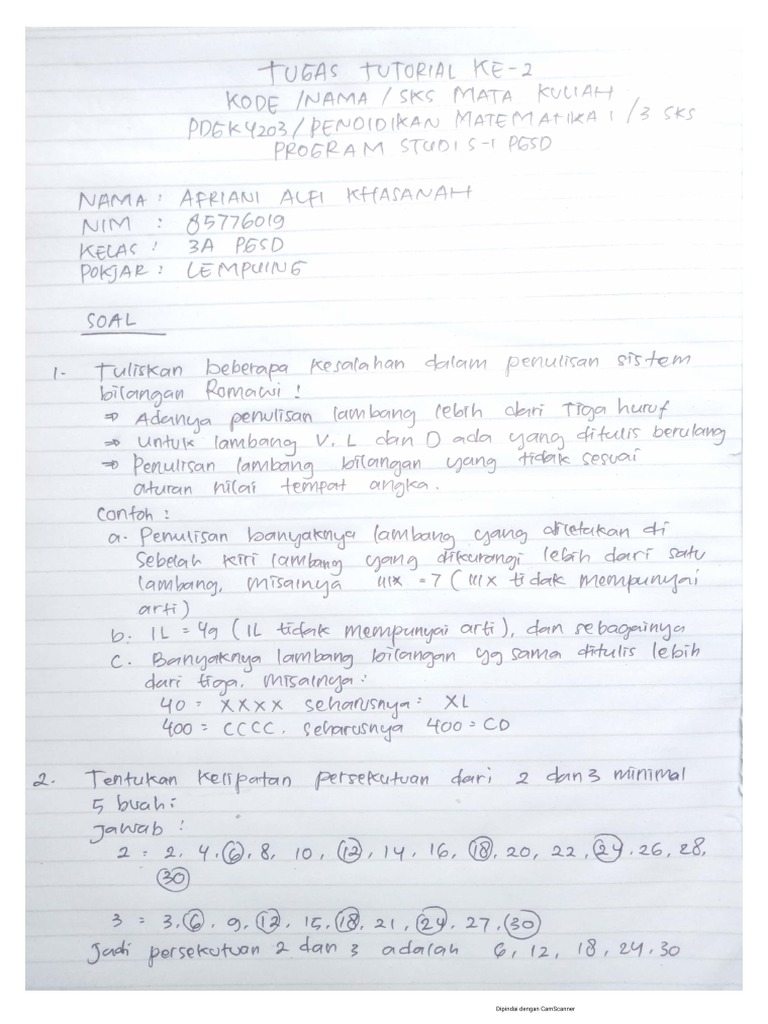 TUGAS TUTORIAL KE-2
KODE /NAMA / SKS MATA KULIAH
PDGK4203/PENDIDIKAN MATEMATIKA 1 /3 SKS
PROGRAM STUDI S-1 PGSD
NAMA : AFRIANI ALFI KHASANAH
NIM : 85776019
KELAS : 3A PGSD
POKJAR : LEMPUING
SOAL
1- Tuliskan beberapa kesalahan dalam penulisan sistem
bilangan Romawi !
⇒ Adanya penulisan lambang lebih dari Tiga huruf
⇒ Untuk lambang V. L dan D ada yang ditulis berulang
⇒ Penulisan lambang bilangan yang tidak sesuai
aturan nilai tempat angka.
Contoh :
a. Penulisan banyaknya lambang yang diletakan di
Sebelah kiri lambang yang dikurangi lebih dari satu
lambang, misalnya IIIX = 7 ( IIIX tidak mempunyai
arti)
b. IL = 49 ( IL tidak mempunyai arti), dan sebagainya
C. Banyaknya lambang bilangan yg sama ditulis lebih
dari tiga. misalnya :
40 = XXXX seharusnya = XL
400 = CCCC. Seharusnya 400 = CD
2. Tentukan kelipatan persekutuan dari 2 dan 3 minimal
5 buah :
Jawab :
2 = 2, 4, 6, 8, 10, 12, 14, 16, 18, 20, 22, 24, 26, 28,
30
3 = 3, 6, 9, 12, 15, 18, 21, 24, 27, 30
Jadi persekutuan 2 dan 3 adalah 6, 12, 18, 24, 30
Dipindai dengan CamScanner